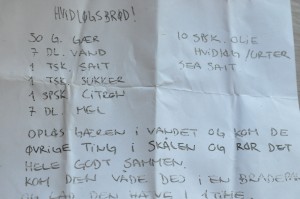 HVIDLØGSBRØD!
50 G. GÆR
7 DL. VAND
1 TSK. SALT
1 TSK. SUKKER
1 SPSK CITRON
7 DL. MEL
10 SPSK. OLIE
HVIDLØG/URTER
SEA SALT
OPLØS GÆREN I VANDET OG KOM DE
ØVRIGE TING I SKÅLEN OG RØR DET
HELE GODT SAMMEN.
KOM DEN VÅDE DEJ I EN BRADEPA
OG LAD DEN HÆVE I 1 TIME.